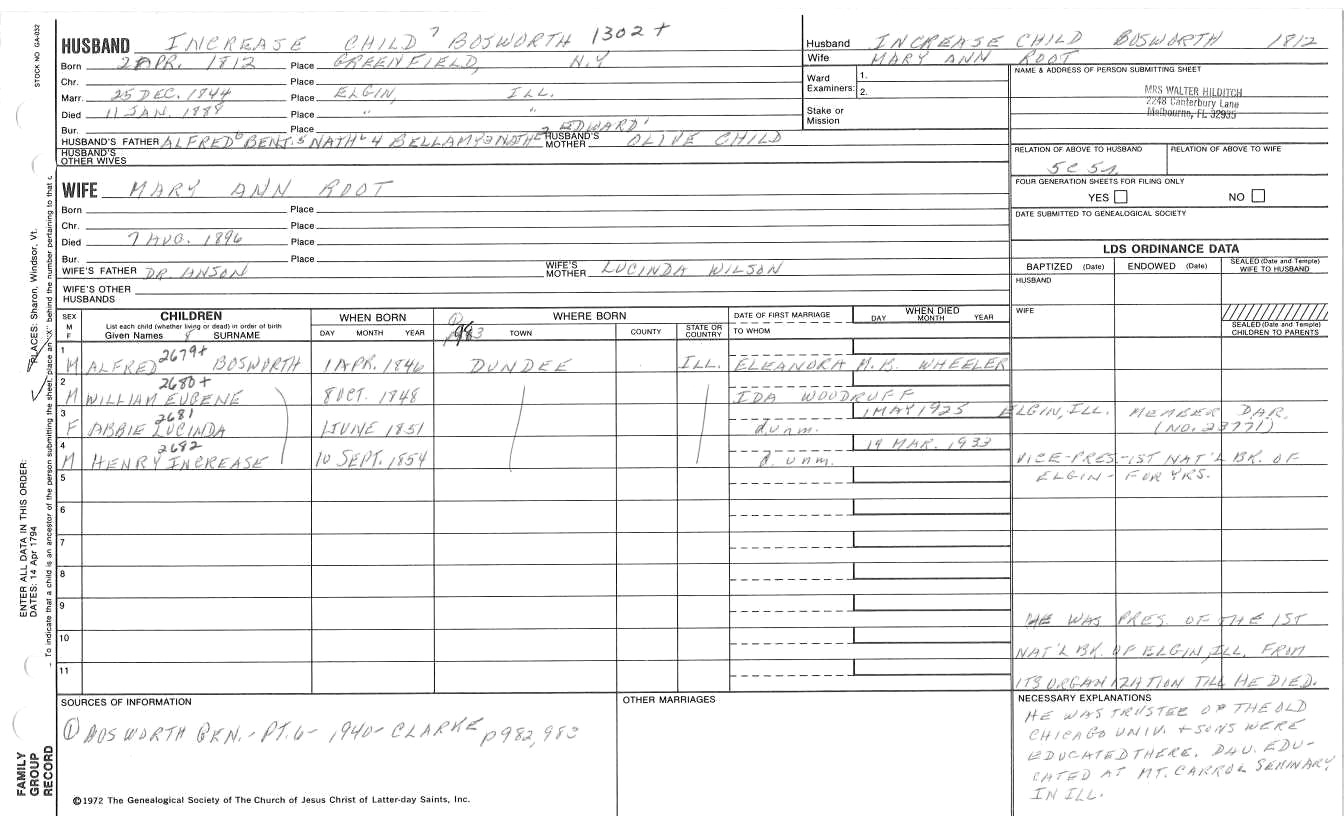 STOCK NO GA-032
PLACES: Sharon, Windsor, Vt.
ENTER ALL DATA IN THIS ORDER:
DATES: 14 Apr 1794
To indicate that a child is an ancestor of the person submitting the sheet, place an "X" behind the number pertaining to that c
FAMILY
GROUP
RECORD
HUSBAND INCREASE CHILD 7 BOSWORTH 1302+
Born 2 APR. 1812 Place GREENFIELD, N.Y
Chr. Place
Marr. 25 DEC. 1844 Place ELGIN, ILL.
Died 11 JAN. 1888 Place " "
Bur. Place
HUSBAND'S FATHER ALFRED 6 BENJ. 5 NATH'L 4 BELLAMY 3 NATH'L 2 EDWARD 1 HUSBAND'S MOTHER OLIVE CHILD
HUSBAND'S
OTHER WIVES
WIFE MARY ANN ROOT
Born Place
Chr. Place
Died 7 AUG. 1896 Place
Bur. Place
WIFE'S FATHER DR. ANSON WIFE'S MOTHER LUCINDA WILSON
WIFE'S OTHER
HUSBANDS
Husband INCREASE CHILD BOSWORTH 1812
Wife MARY ANN ROOT
Ward
Examiners: 1.
2.
Stake or
Mission
NAME & ADDRESS OF PERSON SUBMITTING SHEET
MRS WALTER HILDITCH
2248 Canterbury Lane
Melbourne, FL 32935
RELATION OF ABOVE TO HUSBAND RELATION OF ABOVE TO WIFE
5C 5r.
FOUR GENERATION SHEETS FOR FILING ONLY
YES NO
DATE SUBMITTED TO GENEALOGICAL SOCIETY
LDS ORDINANCE DATA
BAPTIZED (Date) ENDOWED (Date) SEALED (Date and Temple) WIFE TO HUSBAND
HUSBAND
WIFE
SEALED (Date and Temple)
CHILDREN TO PARENTS
SEX
M
F
CHILDREN
List each child (whether living or dead) in order of birth
Given Names 8 SURNAME
WHEN BORN
DAY MONTH YEAR
① p983 WHERE BORN
TOWN COUNTY STATE OR COUNTRY
DATE OF FIRST MARRIAGE
TO WHOM
WHEN DIED
DAY MONTH YEAR
1 M ALFRED 2679+ BOSWORTH 1 APR. 1846 DUNDEE ILL. ELEANORA M.B. WHEELER
2 M WILLIAM EUGENE 2680+ 8 OCT. 1848 IDA WOODRUFF
3 F ABBIE LUCINDA 2681 1 JUNE 1851 d. unm. 1 MAY 1925 ELGIN, ILL. MEMBER DAR.
(NO. 23771)
4 M HENRY INCREASE 2682 10 SEPT. 1854 d. unm. 19 MAR. 1933 VICE-PRES-1ST NAT'L BK. OF
ELGIN - FOR YRS.
5
6
7
8
9
10
11
HE WAS PRES. OF THE 1ST
NAT'L BK. OF ELGIN, ILL. FROM
ITS ORGANIZATION TILL HE DIED.
SOURCES OF INFORMATION
① BOSWORTH GEN. - PT. 6 - 1940 - CLARKE p982, 983
©1972 The Genealogical Society of The Church of Jesus Christ of Latter-day Saints, Inc.
OTHER MARRIAGES
NECESSARY EXPLANATIONS
HE WAS TRUSTEE OF THE OLD
CHICAGO UNIV. + SONS WERE
EDUCATED THERE. DAU. EDU-
CATED AT MT. CARROL SEMINARY
IN ILL.